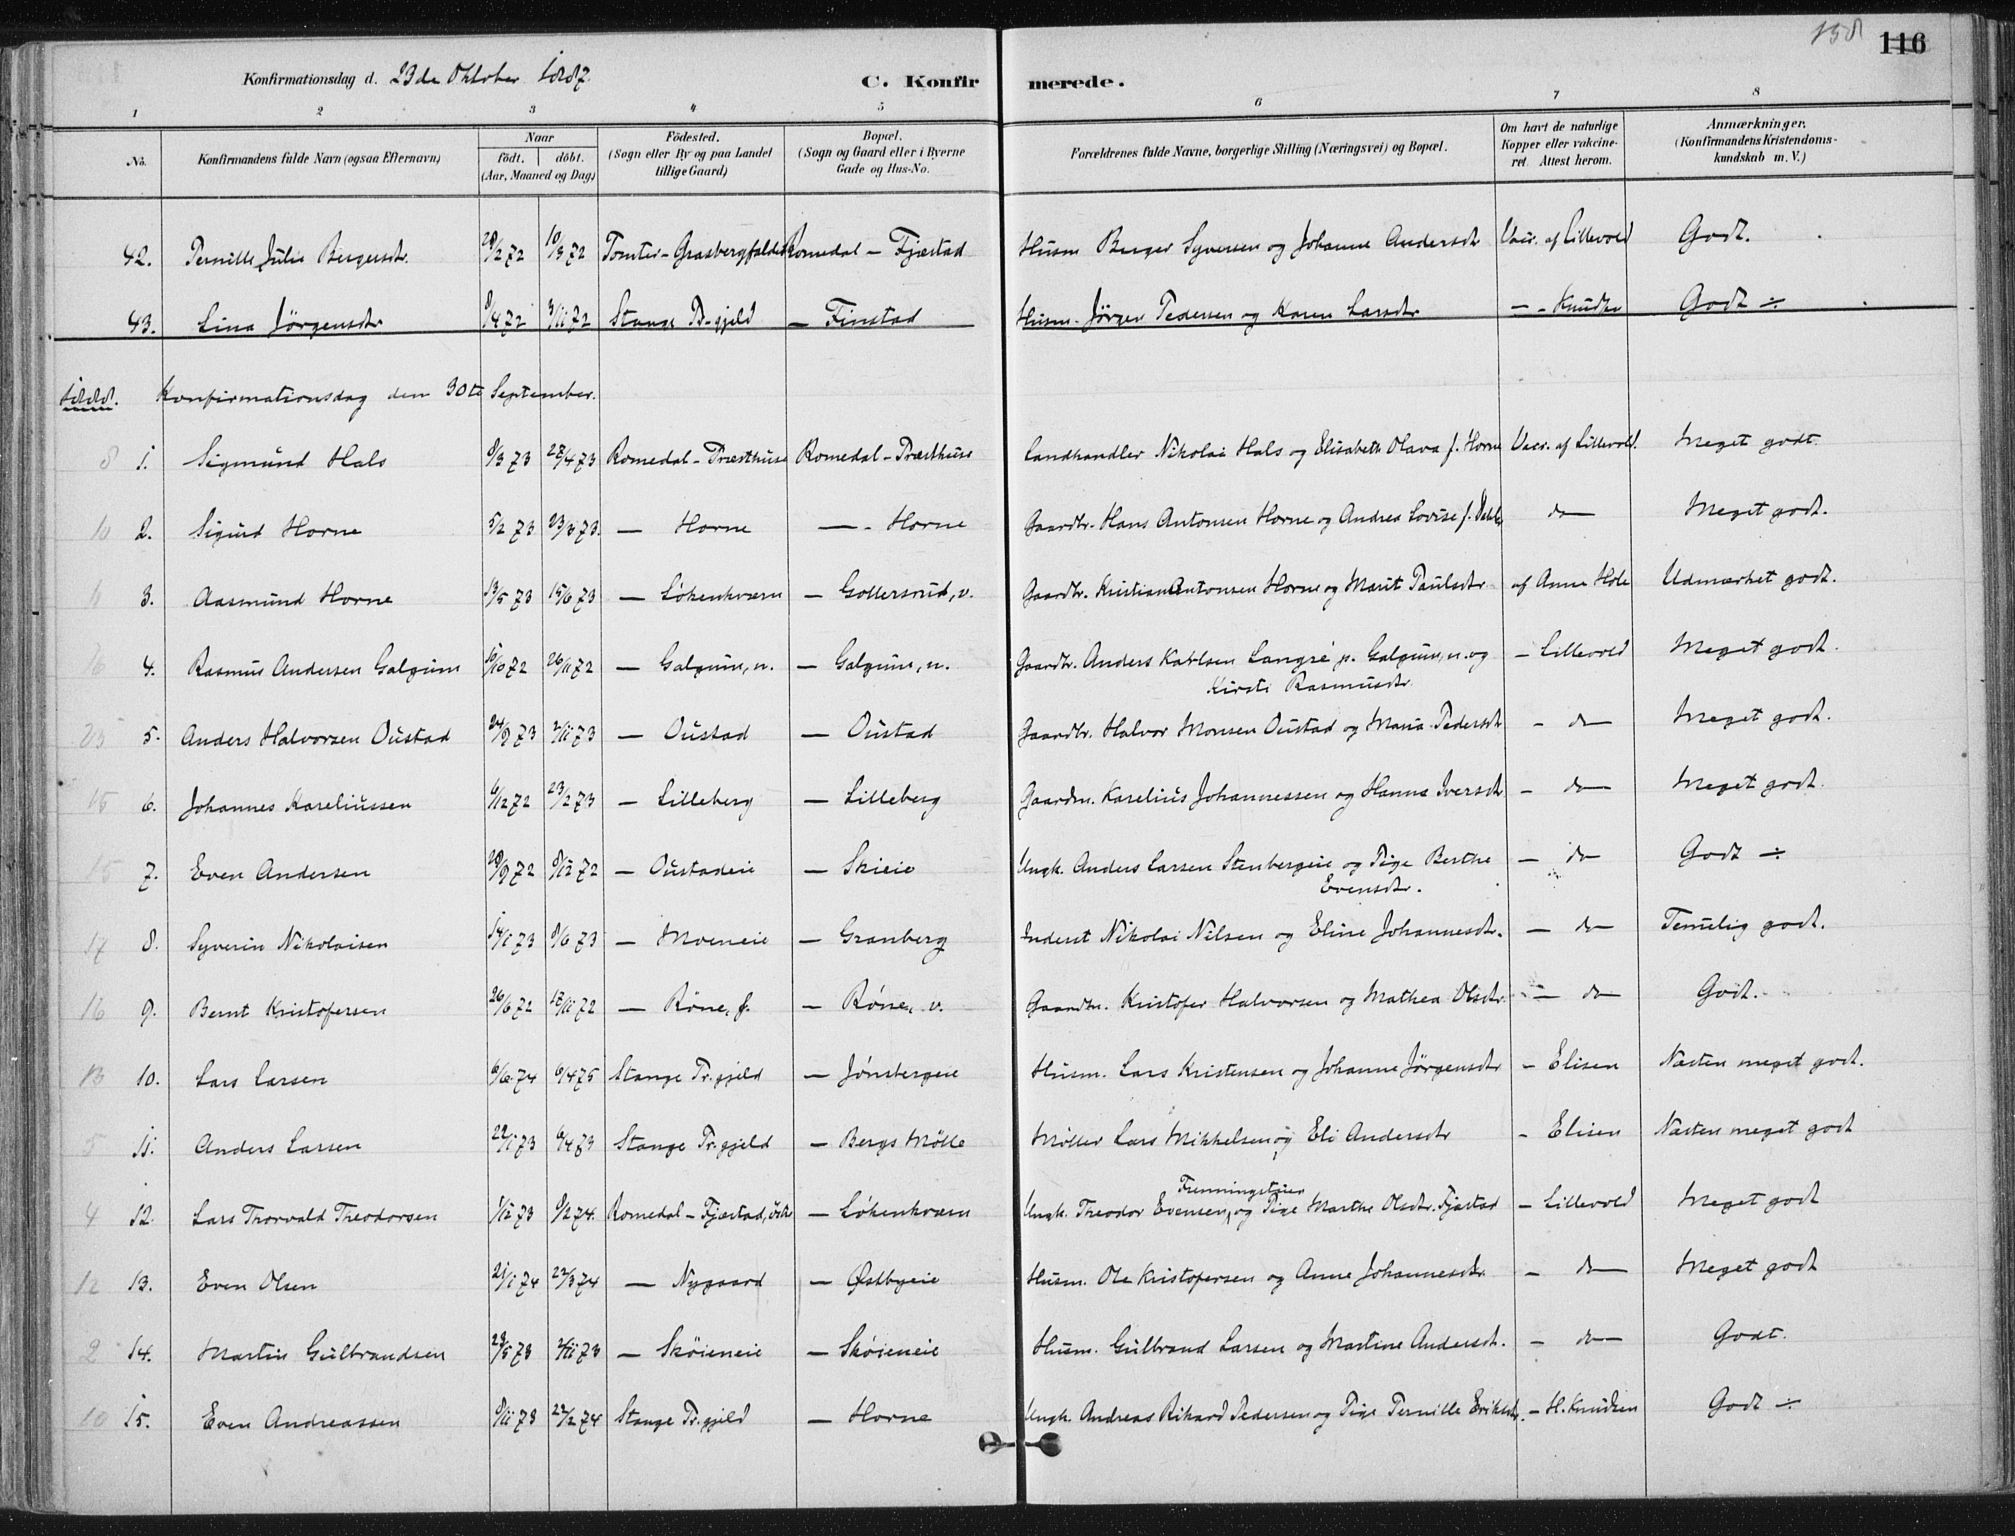 158 116
Konfirmationsdag d. 23de Oktober 1887. C. Konfirmerede.
1 2 3 4 5 6 7 8
No. Konfirmandens fulde Navn (ogsaa Efternavn) Naar födt. döbt. (Aar, Maaned og Dag) Födested. (Sogn eller By og paa Landet tillige Gaard) Bopæl. (Sogn og Gaard eller i Byerne Gade og Hus-No. Forældrenes fulde Navne, borgerlige Stilling (Næringsvei) og Bopæl. Om havt de naturlige Kopper eller vakcineret. Attest herom. Anmærkninger. (Konfirmandens Kristendomskundskab m. V.)
42. Pernille Julie Bergersdtr. 28/2 72 10/3 72 Tomter - Grasbergfaldet Romedal - Fjæstad Husm Berger Syversen og Johanne Andersdtr Vacc. af Lillevold Godt.
43. Lina Jörgensdtr 8/4 72 3/11 72 Stange P-gjeld — Finstad Husm. Jörgen Pedersen og Karen Larsdtr — - Knudsen Godt ÷
1888. Konfirmationsdag den 30te September.
8 1. Sigmund Hals 8/3 73 27/4 73 Romedal - Præsthuse Romedal - Præsthuse Landhandler Nikolai Hals og Elisabeth Olava f. Horne Vacc. af Lillevold. Meget godt.
10 2. Sigurd Horne 5/2 73 23/3 73. — Horne — - Horne Gaardbr. Hans Antonsen Horne og Andrea Lovise f. do Meget godt.
3. Aasmund Horne 13/5 73 15/6 73 — Lökenkværn — Gollersrud, v. Gaardbr. Kristian Antonsen Horne og Marit Paulsdtr af Anne Hole Udmærket godt.
16 4. Rasmus Andersen Galgum 10/10 72 26/11 72 — Galgum, n. — Galgum, n. Gaardbr. Anders Karlsen Langré p. Galgum, n. og Kirsti Rasmusdtr. - Lillevold Meget godt.
23 5. Anders Halvorsen Oustad 24/9 73 2/11 73 — Oustad — Oustad Gaardbr. Halvor Monsen Oustad og Maria Pedersdtr - do Meget godt.
15 6. Johannes Kareliussen 6/12 72 23/2 73 — Lilleberg — Lilleberg Gaardm. Karelius Johannessen og Hanna Iversdtr - do Meget godt.
15 7. Even Andersen 28/9 72 8/12 72 — Oustadeie — Skieie Ungk. Anders Larsen Stenbergeie og Pige Berthe Evensdtr. - do Godt ÷
17 8. Syverin Nikolaisen 14/1 73 8/6 73 — Moeneie — Granberg Inderst Nikolai Nilsen og Eline Johannesdtr. - do Temelig godt.
16 9. Bernt Kristofersen 26/6 72 17/11 72 — Röne, — Röne, v. Gaardm. Kristofer Halvorsen og Mathea Olsdtr. - do Godt.
13 10. Lars Larsen 6/6 74 6/4 75 Stange Pr.gjeld — Jönsbergeie Husm. Lars Kristensen og Johanne Jörgensdtr - Elisen Næsten meget godt.
5 11. Anders Larsen 22/1 73 6/4 73 Stange Pr.gjeld — Bergs Mölle Möller Lars Mikkelsen og Eli Andersdtr - Elisen Næsten meget godt
4 12. Lars Thorvald Theodorsen 1/12 73 8/2 74. Romedal - Fjæstad, östre — Lökenkværn Ungk. Theodor Evensen, og Pige Marthe Olsdtr. Fjæstad - Lillevold Meget godt
12 13. Even Olsen 21/1 74 22/3 74 — Nygaard — Østbyeie Husm. Ole Kristofersen og Anne Johannesdtr. - do Meget godt
2 14. Martin Gulbrandsen 29/5 73 2/11 73 — Sköieneie — Sköieneie Husm. Gulbrand Larsen og Martine Andersdtr. - do Godt.
10 15. Even Andreassen 8/11 73 22/2 74 Stange Pr.gjeld — Horne Ungk. Andreas Rikard Pedersen og Pige Pernille Eriksdtr. - H. Knudsen Godt ÷